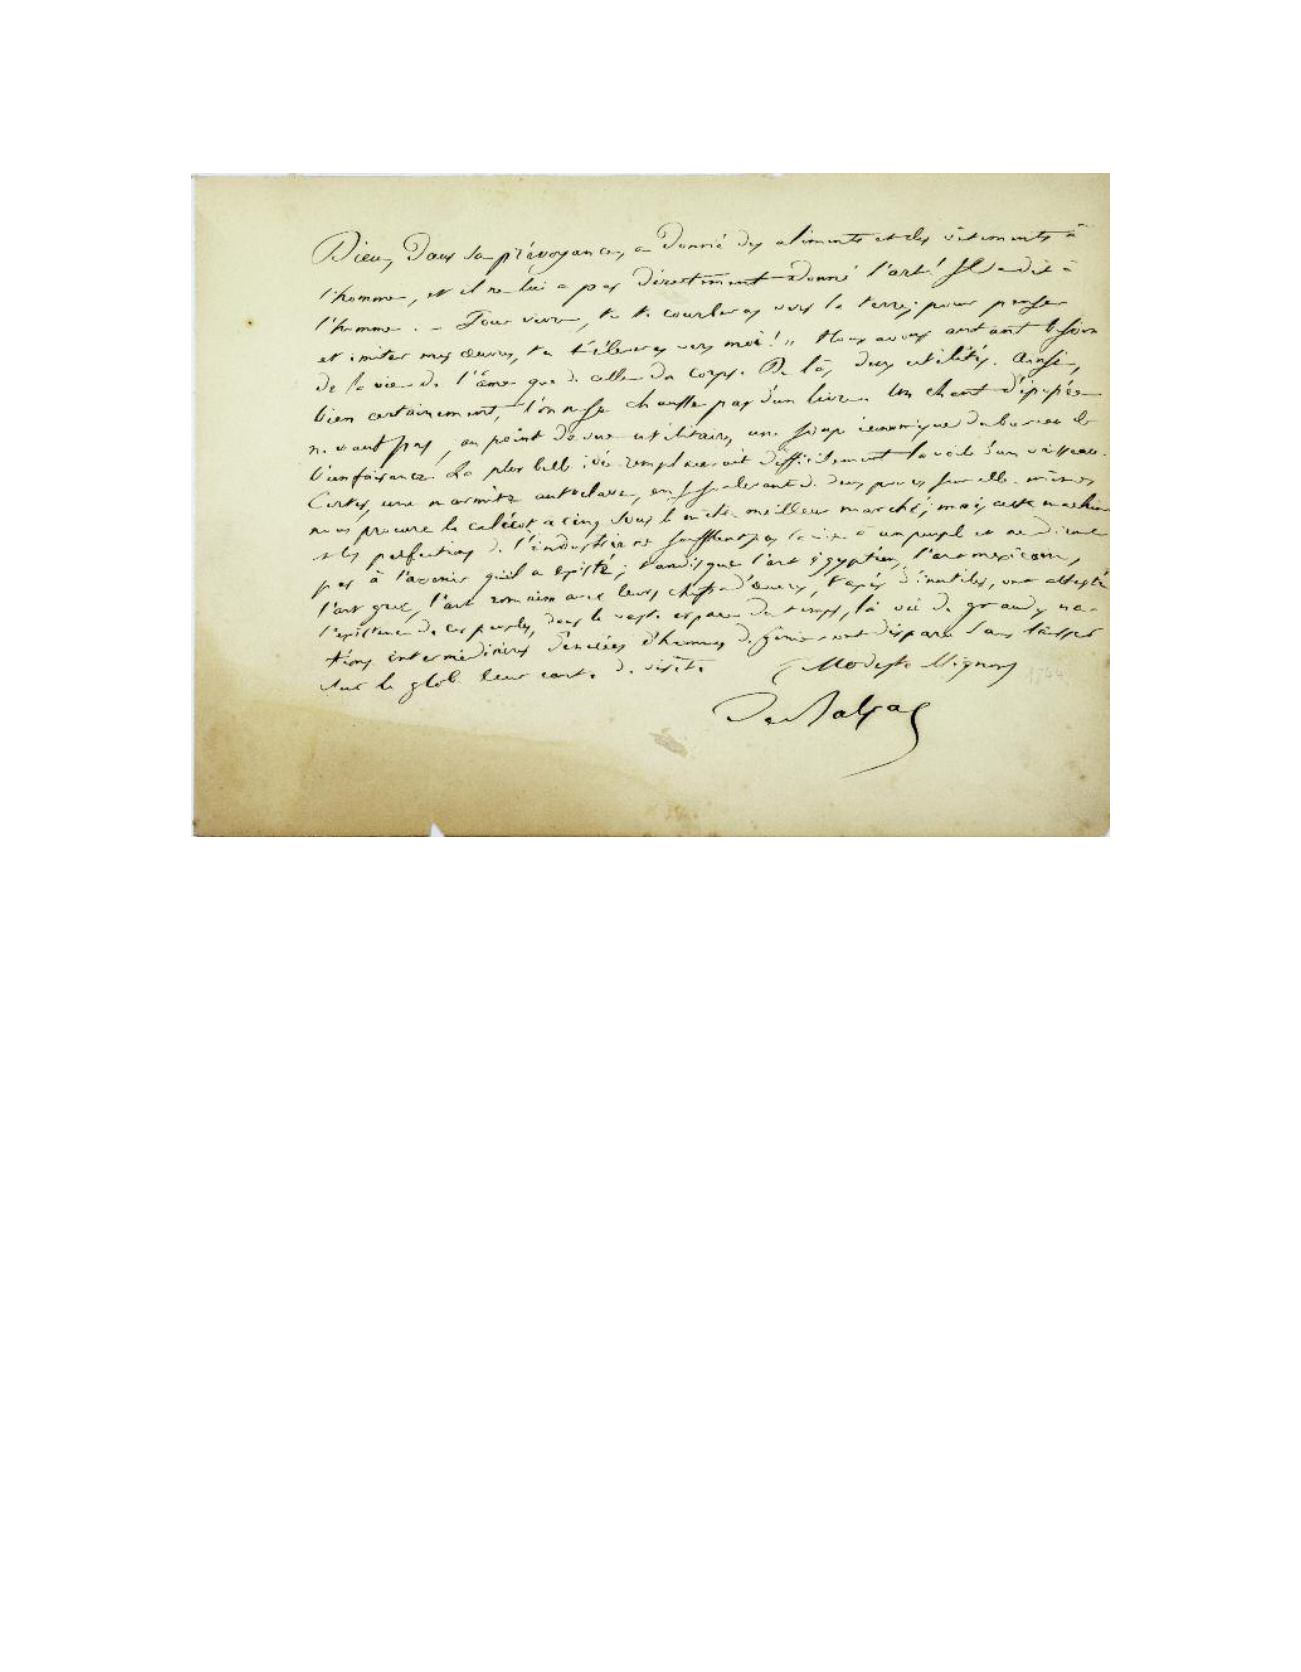 Dieu, dans sa prévoyance, a donné des aliments et des vêtements à
l'homme, et il ne lui a pas directement donné l'art! Il a dit à
l'homme. – Pour vivre, tu te courberas vers la terre; pour penser
et imiter mes œuvres, tu t'élèveras vers moi! » Nous avons autant besoin
de la vie de l'âme que de celle du corps. De là, deux utilités. Ainsi,
bien certainement, l'on ne se chauffe pas d'un livre. Un chant d'épopée
ne vaut pas, au point de vue utilitaire, une soupe économique du bureau de
bienfaisance. La plus belle idée remplacerait difficilement la voile d'un vaisseau.
Certes, une marmite autoclave, en se soulevant de deux pouces sur elle-même,
nous procure le calicot à cinq sous le mètre meilleur marché; mais, cette machine
et les perfections de l'industrie ne soufflent pas la vie à un peuple et ne diront
pas à l'avenir qu'il a existé; tandis que l'art égyptien, l'art mexicain,
l'art grec, l'art romain avec leurs chefs-d'œuvres, taxés d'inutiles, ont attesté
l'existence de ces peuples, dans le vaste espace du temps, là où de grandes na-
tions intermédiaires dénuées d'hommes de génie ont disparu sans laisser
sur le globe leur carte de visite
(Modeste Mignon)
1844
De Balzac